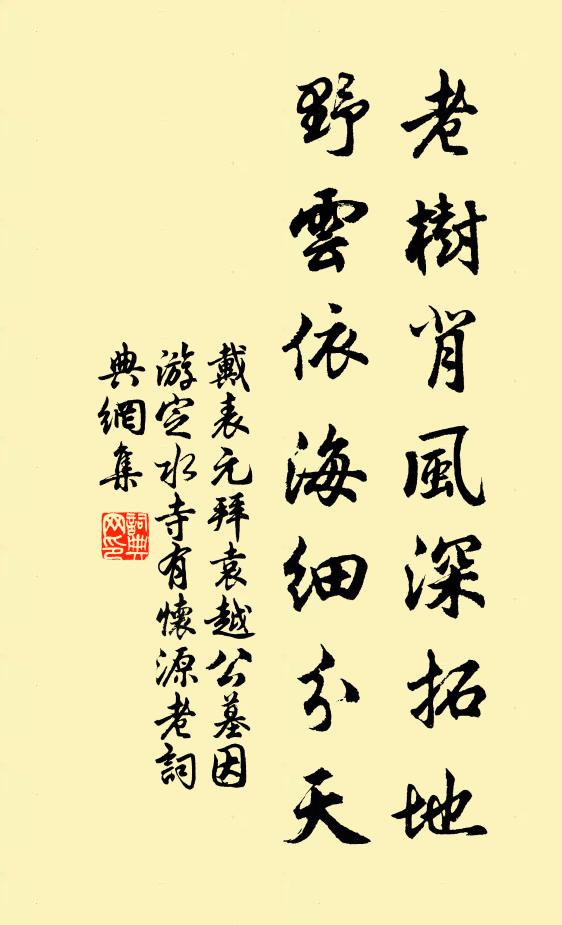 老樹背風深拓地
野雲依海細分天
戴表元拜袁越公墓因
游定水寺有懷源老詞
典網集
詞典網印